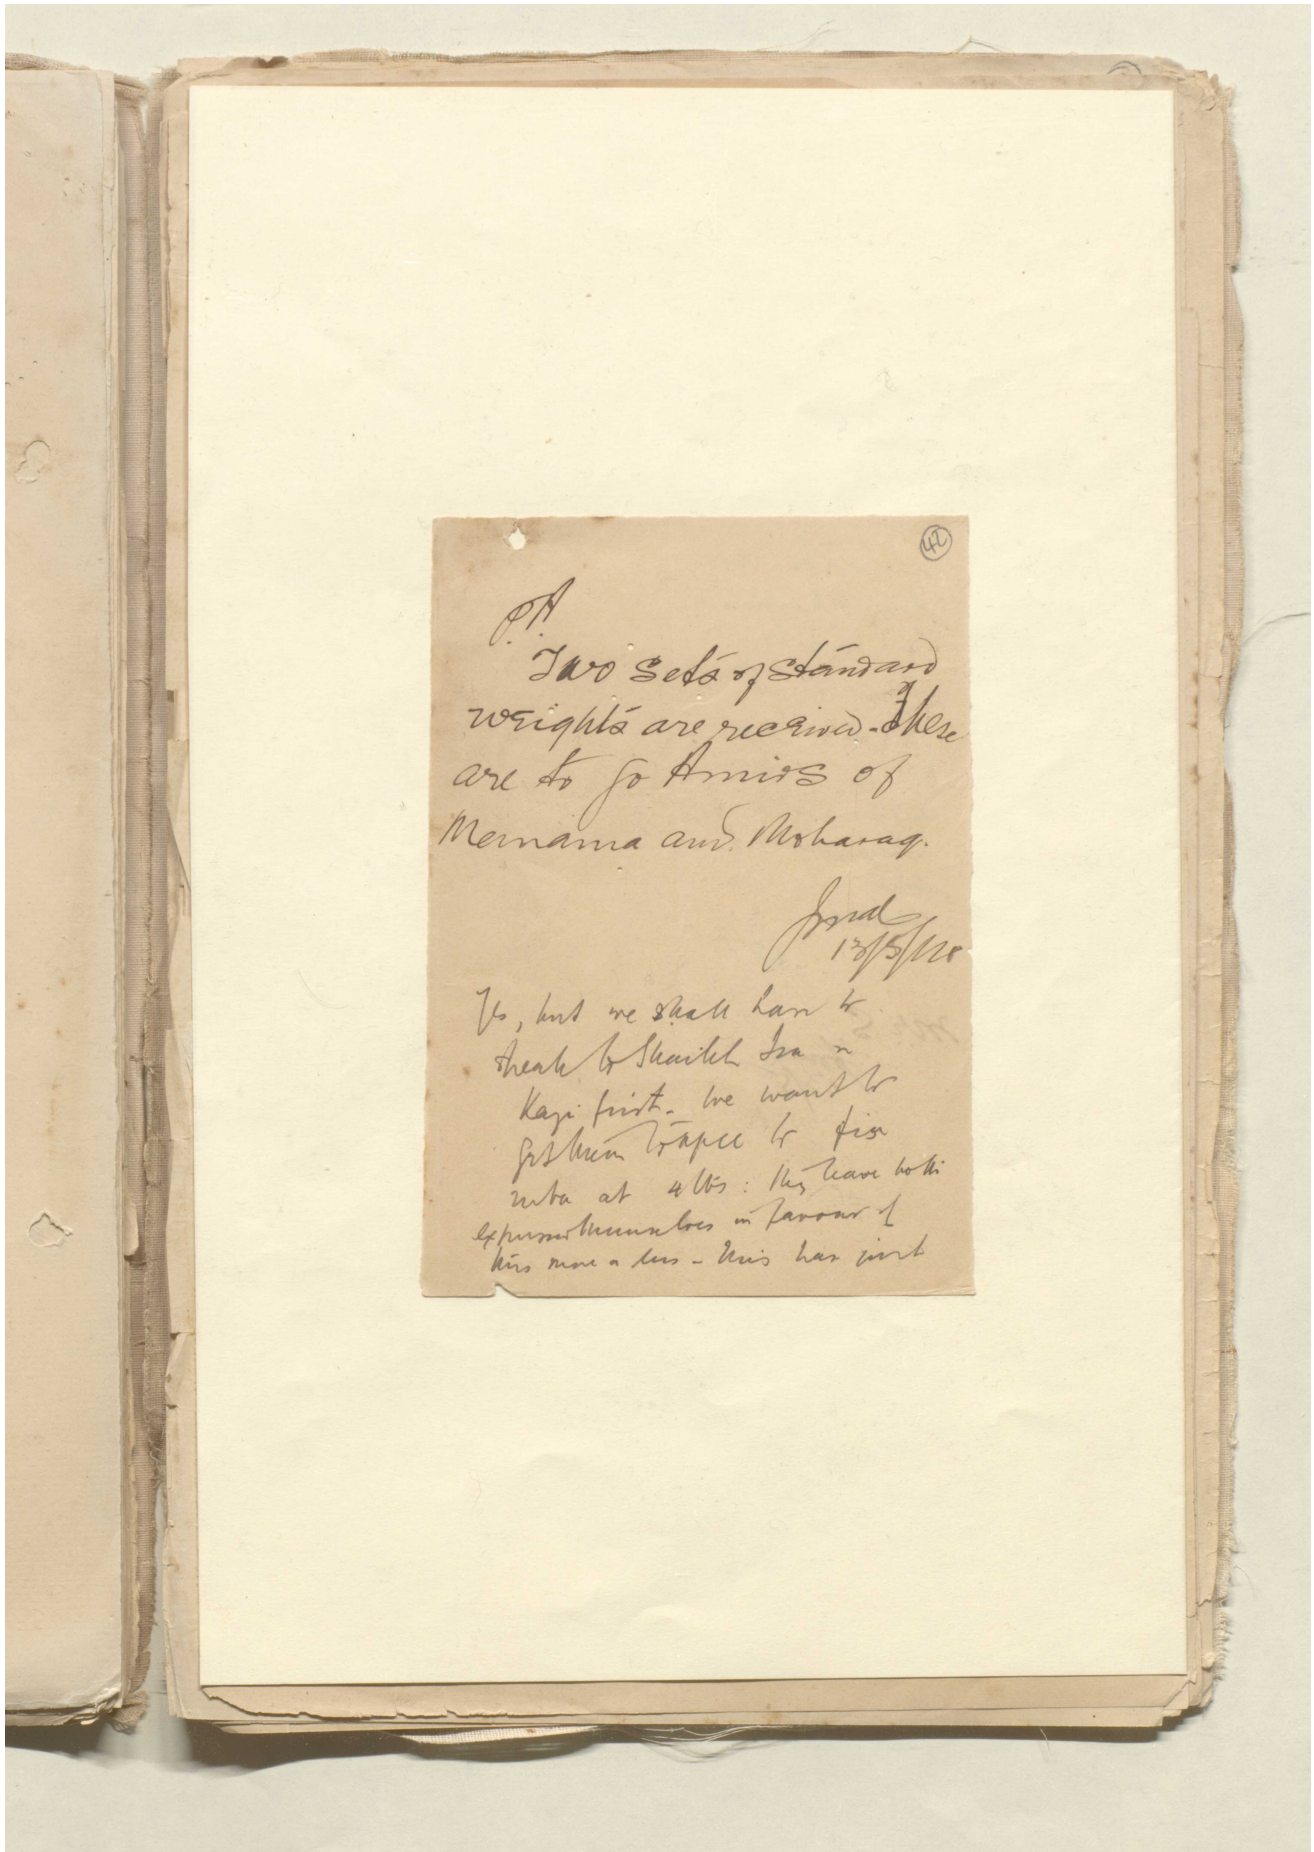 42
P.A
Two sets of standard
weights are received. These
are to go Amirs of
Menama and Moharaq.
13/5/
Yes, but we shall have to
speak to Shaikh Isa &
Kazi first. We want to
get them to agree to fix
ruba at 4 lbs: they have both
expressed themselves in favour of
this more or less - this has just